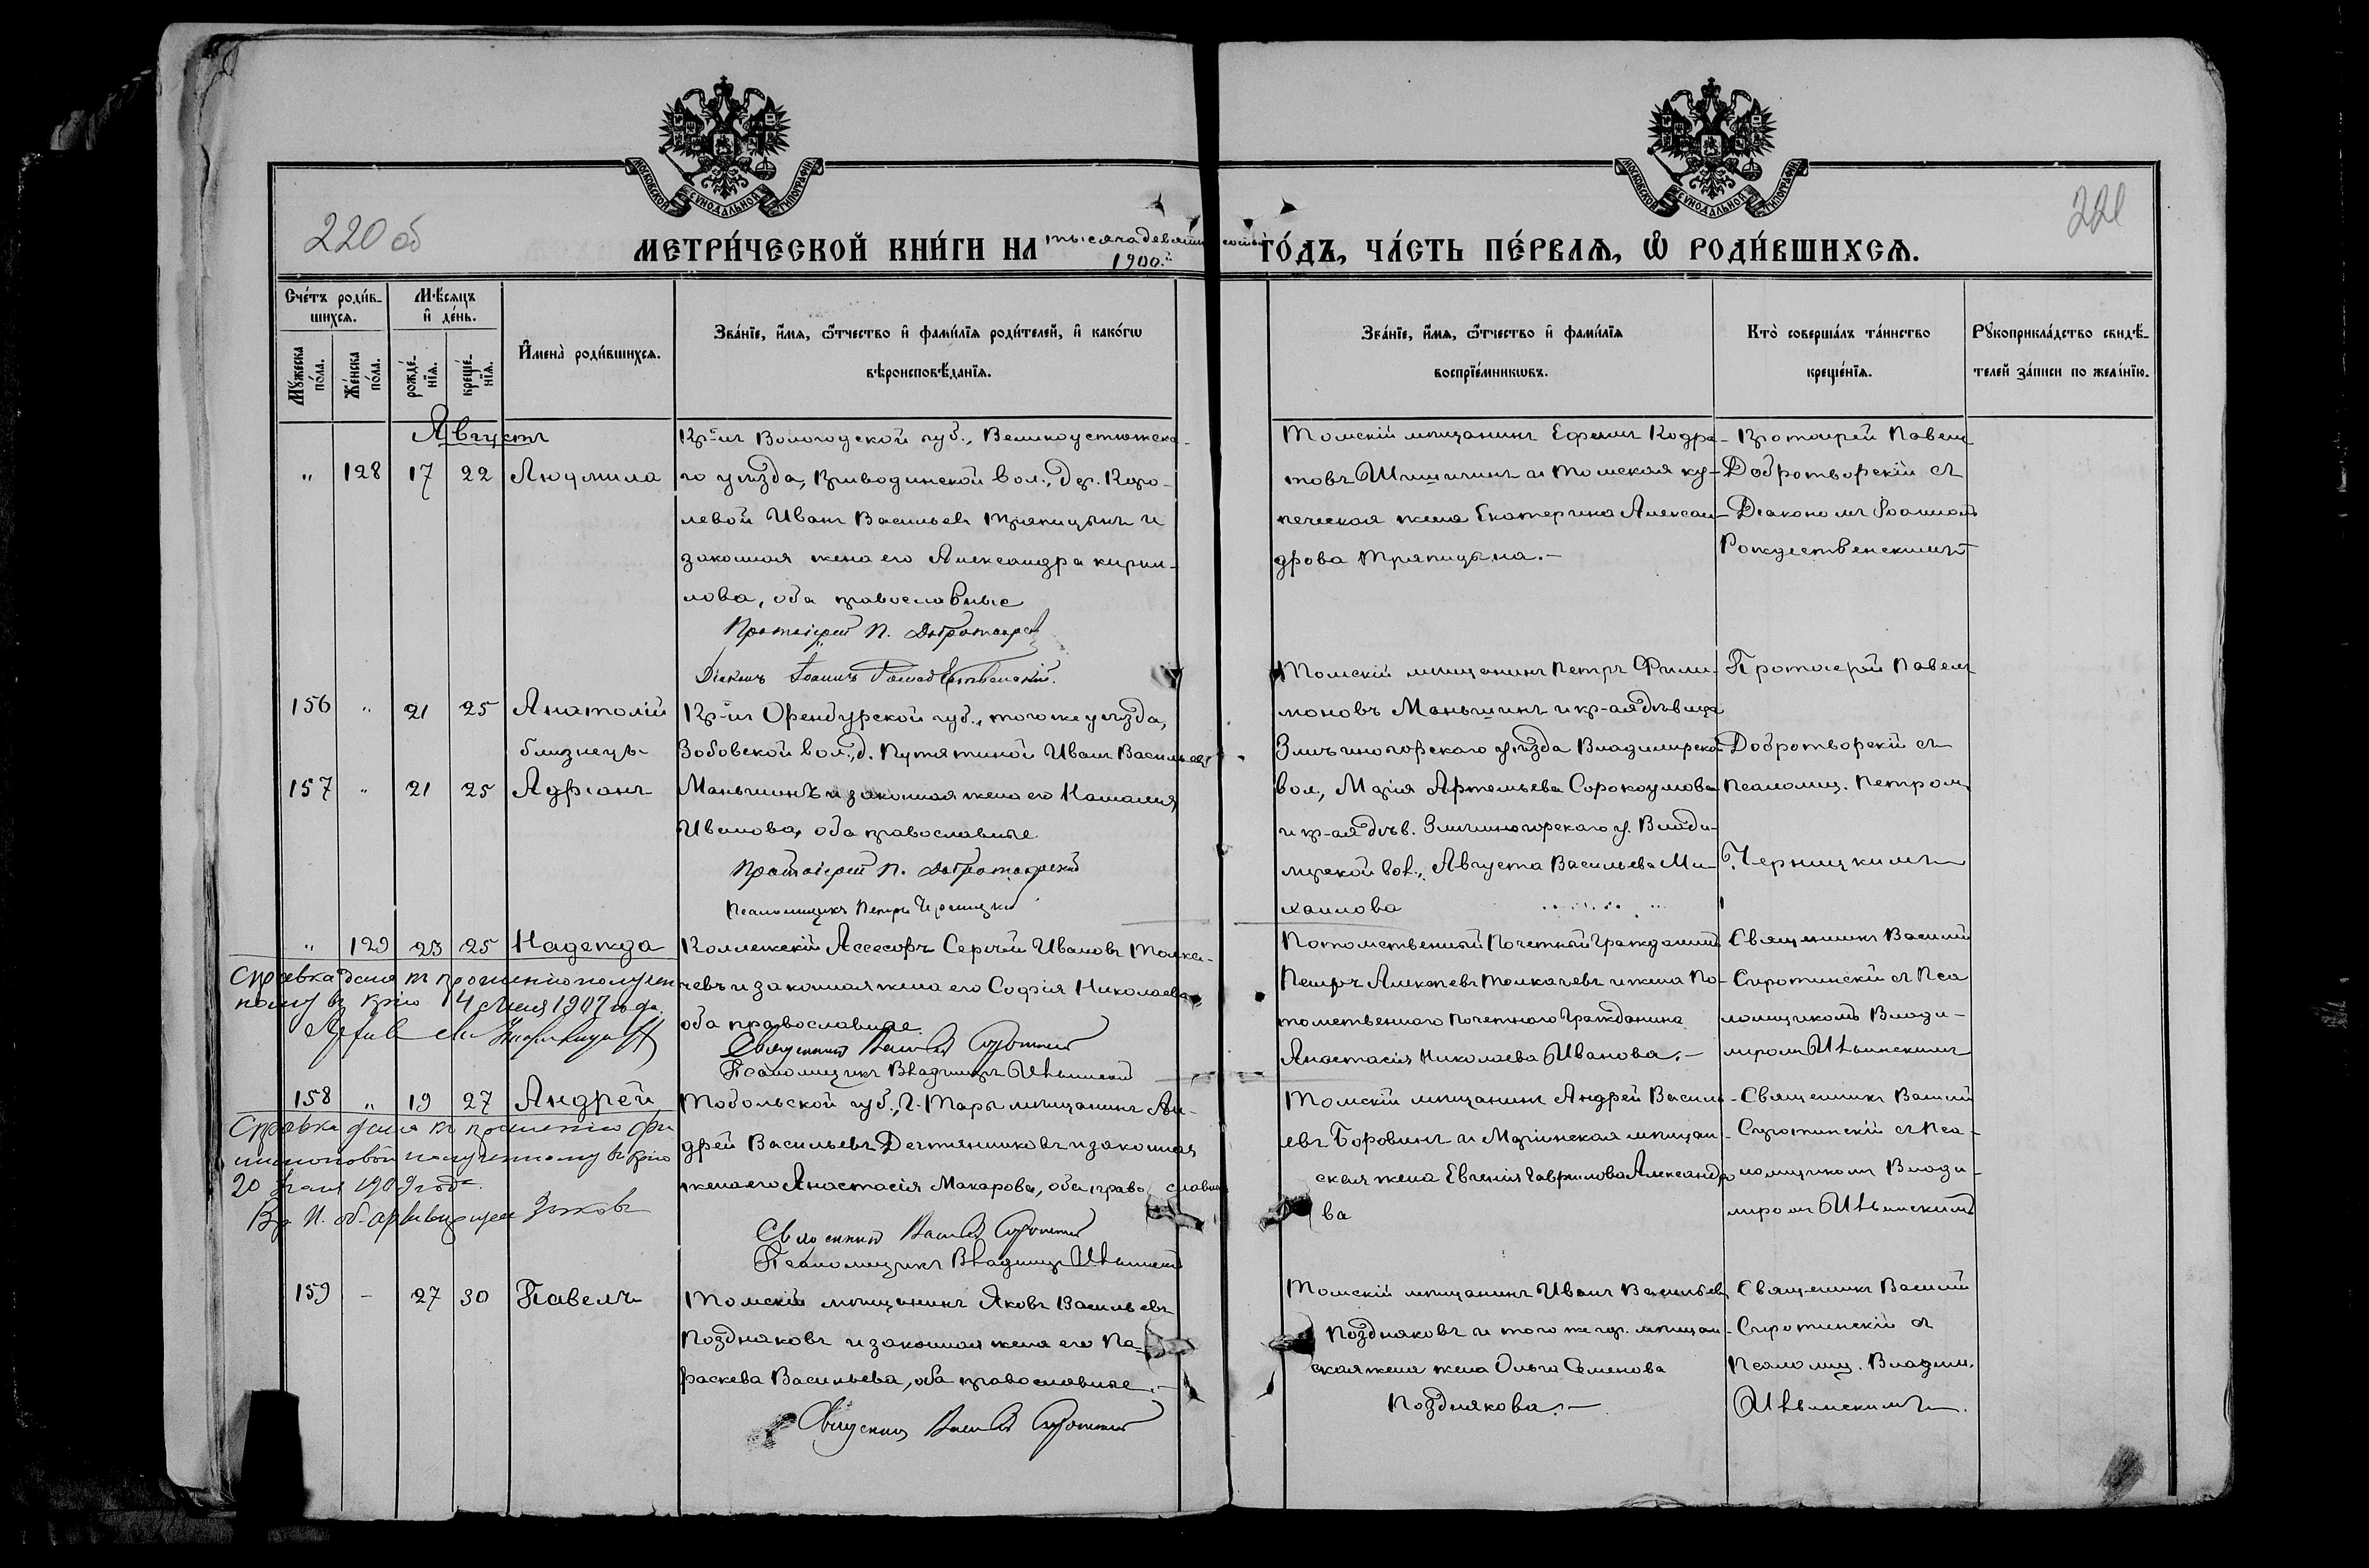 220 об
МОСКОВСКОЙ СѴНОДАЛЬНОЙ ТИПОГРАФІИ
МОСКОВСКОЙ СѴНОДАЛЬНОЙ ТИПОГРАФІИ
221
МЕТРИ́ЧЕСКОЙ КНИ́ГИ НА тысяча девятисотый 1900.й ГО́ДЪ, ЧА́СТЬ ПЕ́РВАѦ, Ѡ҆ РОДИ́ВШИХСѦ.
Сче́тъ роди́в-
шихсѧ.
Мѣ́сѧцъ
и҆ де́нь.
Мꙋ́жеска по́ла.
Же́нска по́ла.
рожде́-нїѧ.
креще́-нїѧ.
И҆мена̀ роди́вшихсѧ.
Зва́нїе, и҆́мѧ, ѻ҆́тчество и҆ фами́лїѧ роди́телей, и҆ како́гѡ
вѣроисповѣ́данїѧ.
Зва́нїе, и҆́мѧ, ѻ҆́тчество и҆ фами́лїѧ
воспрїе́мникѡвъ.
Кто̀ соверша́лъ та́инство
креще́нїѧ.
Рꙋкоприкла́дство свидѣ́-
телей за́писи по жела́нїю.
Августъ
" 128 17 22 Людмила
Кр-нъ Вологодской губ., Великоустюжска-
го уѣзда, Приводинской вол., Дер. Коро-
левой Иванъ Васильевъ Тряпицынъ и
законная жена его Александра Кирил-
лова, оба православные
Протоіерей П. Добротворск
Діаконъ Іоаннъ Рождественскій.
Томскій мѣщанинъ Ефимъ Кодра-
товъ Шишигинъ и Томская ку-
печеская жена Екатерина Алексан-
дрова Тряпицына.-
Протоіерей Павелъ
Добротворскій съ
Діакономъ Іоанномъ
Рождественскимъ
156 " 21 25 Анатолій
близнецъ
157 " 21 25 Адріанъ
Кр-нъ Оренбургской губ., того же уѣзда,
Зобовской вол., д. Путятиной Иванъ Васильевъ
Маньшинъ и законная жена его Наталія
Иванова, оба православные
Протоіерей П. Добротворскій
Псаломщикъ Петръ Черницкій
Томскій мѣщанинъ Петръ Фили-
моновъ Маньшинъ и кр-ая дѣвица
Змѣиногорскаго уѣзда Владимірской
вол, Марія Артемьева Сорокоумова
и кр-ая дѣв. Змѣиногорскаго у. Влади-
мірской вол., Августа Васильева Ми-
хаилова
Протоіерей Павелъ
Добротворскій съ
псаломщ. Петромъ
Черницкимъ
" 129 23 25 Надежда
Справка дана къ прошенію получен
ному въ Kpio 14 1907 года.
Коллежскій Ассесоръ Сергѣй Ивановъ Толка-
чевъ и законная жена его Софія Николаева
оба православные.
Священникъ Василій Сиротинскій
Псаломщикъ Владиміръ Ильинскій
Потомственный Почетный Гражданинъ
Петръ Алексѣевъ Толкачевъ и жена По-
томственнаго Почетнаго Гражданина
Анастасія Николаева Иванова.-
Священникъ Василій
Сиротинскій съ Пса
ломщикомъ Влади-
міромъ Ильинскимъ
158 " 19 27 Андрей
Справка дана къ прошенію
полученному въ
20 1909 года.
Тобольской губ., г. Тары мѣщанинъ Ан-
дрей Васильевъ Дегтянниковъ и законная
жена его Анастасія Макарова, оба православны
Священникъ Василій Сиротинскій
Псаломщикъ Владиміръ Ильинскій
Томскій мѣщанинъ Андрей Василь-
евъ Боровинъ и Маріинская мѣщан-
ская жена Евгенія Гаврилова Александро
ва
Священникъ Василій
Сиротинскій съ Пса-
ломщикомъ Влади-
міромъ Ильинскимъ
159 - 27 30 Павелъ
Томскій мѣщанинъ Яковъ Васильевъ
Поздняковъ и законная жена его Па-
раскева Васильева, оба православные.-
Священникъ Василій Сиротинскій
Томскій мѣщанинъ Иванъ Васильевъ
Поздняковъ и того же гор. мѣщан-
ская жена жена Ольга Семенова
Позднякова.-
Священникъ Василій
Сиротинскій съ
Псаломщ. Владим.
Ильинскимъ.